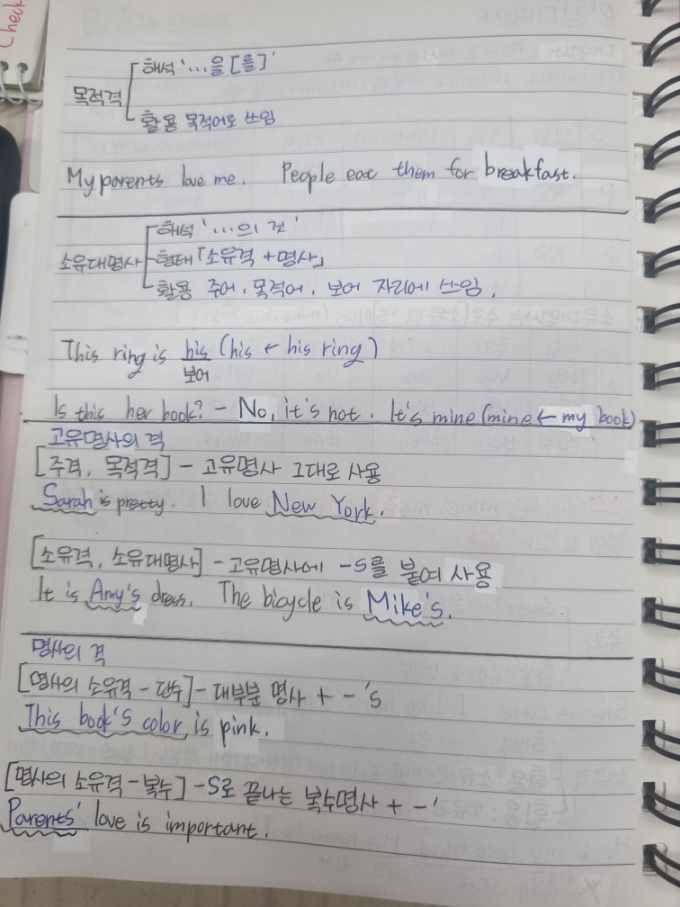 Check
해석 '...을[를]'
목적격
활용 목적어로 쓰임
My parents love me. People eat them for breakfast.
해석 '...의 것'
소유대명사 형태 「소유격 + 명사」
활용 주어, 목적어, 보어 자리에 쓰임.
This ring is his (his ← his ring)
보어
Is this her book? - No, it's not. It's mine (mine ← my book)
고유명사의 격
[주격, 목적격] - 고유명사 그대로 사용
Sarah is pretty. I love New York.
[소유격, 소유대명사] - 고유명사에 -s를 붙여 사용
It is Amy's dress. The bicycle is Mike's.
명사의 격
[명사의 소유격 - 단수] - 대부분 명사 + -'s
This book's color, is pink.
[명사의 소유격 - 복수] -s로 끝나는 복수명사 + -'
Parents' love is important.